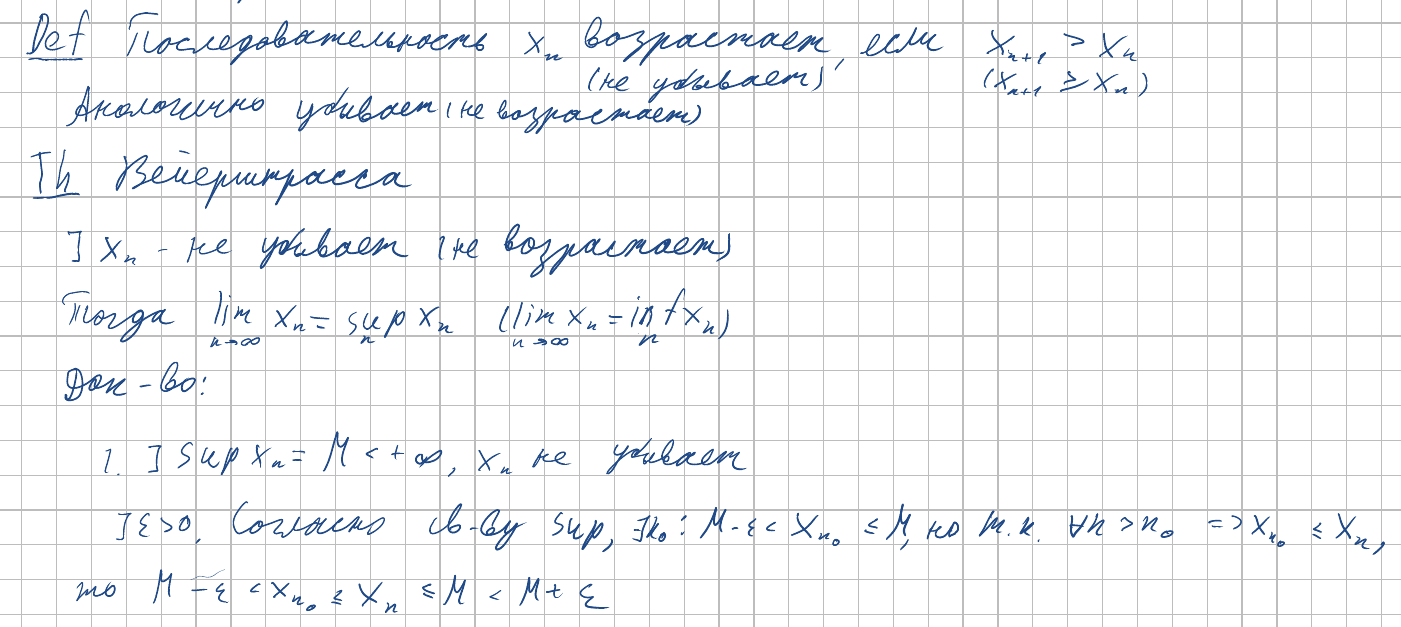 Def Последовательность xₙ возрастает, если xₙ₊₁ > xₙ
(не убывает) (xₙ₊₁ ≥ xₙ)
Аналогично убывает (не возрастает)
Th Вейерштрасса
] xₙ - не убывает (не возрастает)
Тогда lim xₙ = sup xₙ (lim xₙ = inf xₙ)
n→∞ n n→∞ n
Док-во:
1. ] sup xₙ = M < +∞, xₙ не убывает
] ε>0, Согласно св-ву sup, ∃n₀: M-ε < xₙ₀ ≤ M, но т.к. ∀n > n₀ => xₙ₀ ≤ xₙ,
то M - ε < xₙ₀ ≤ xₙ ≤ M < M + ε